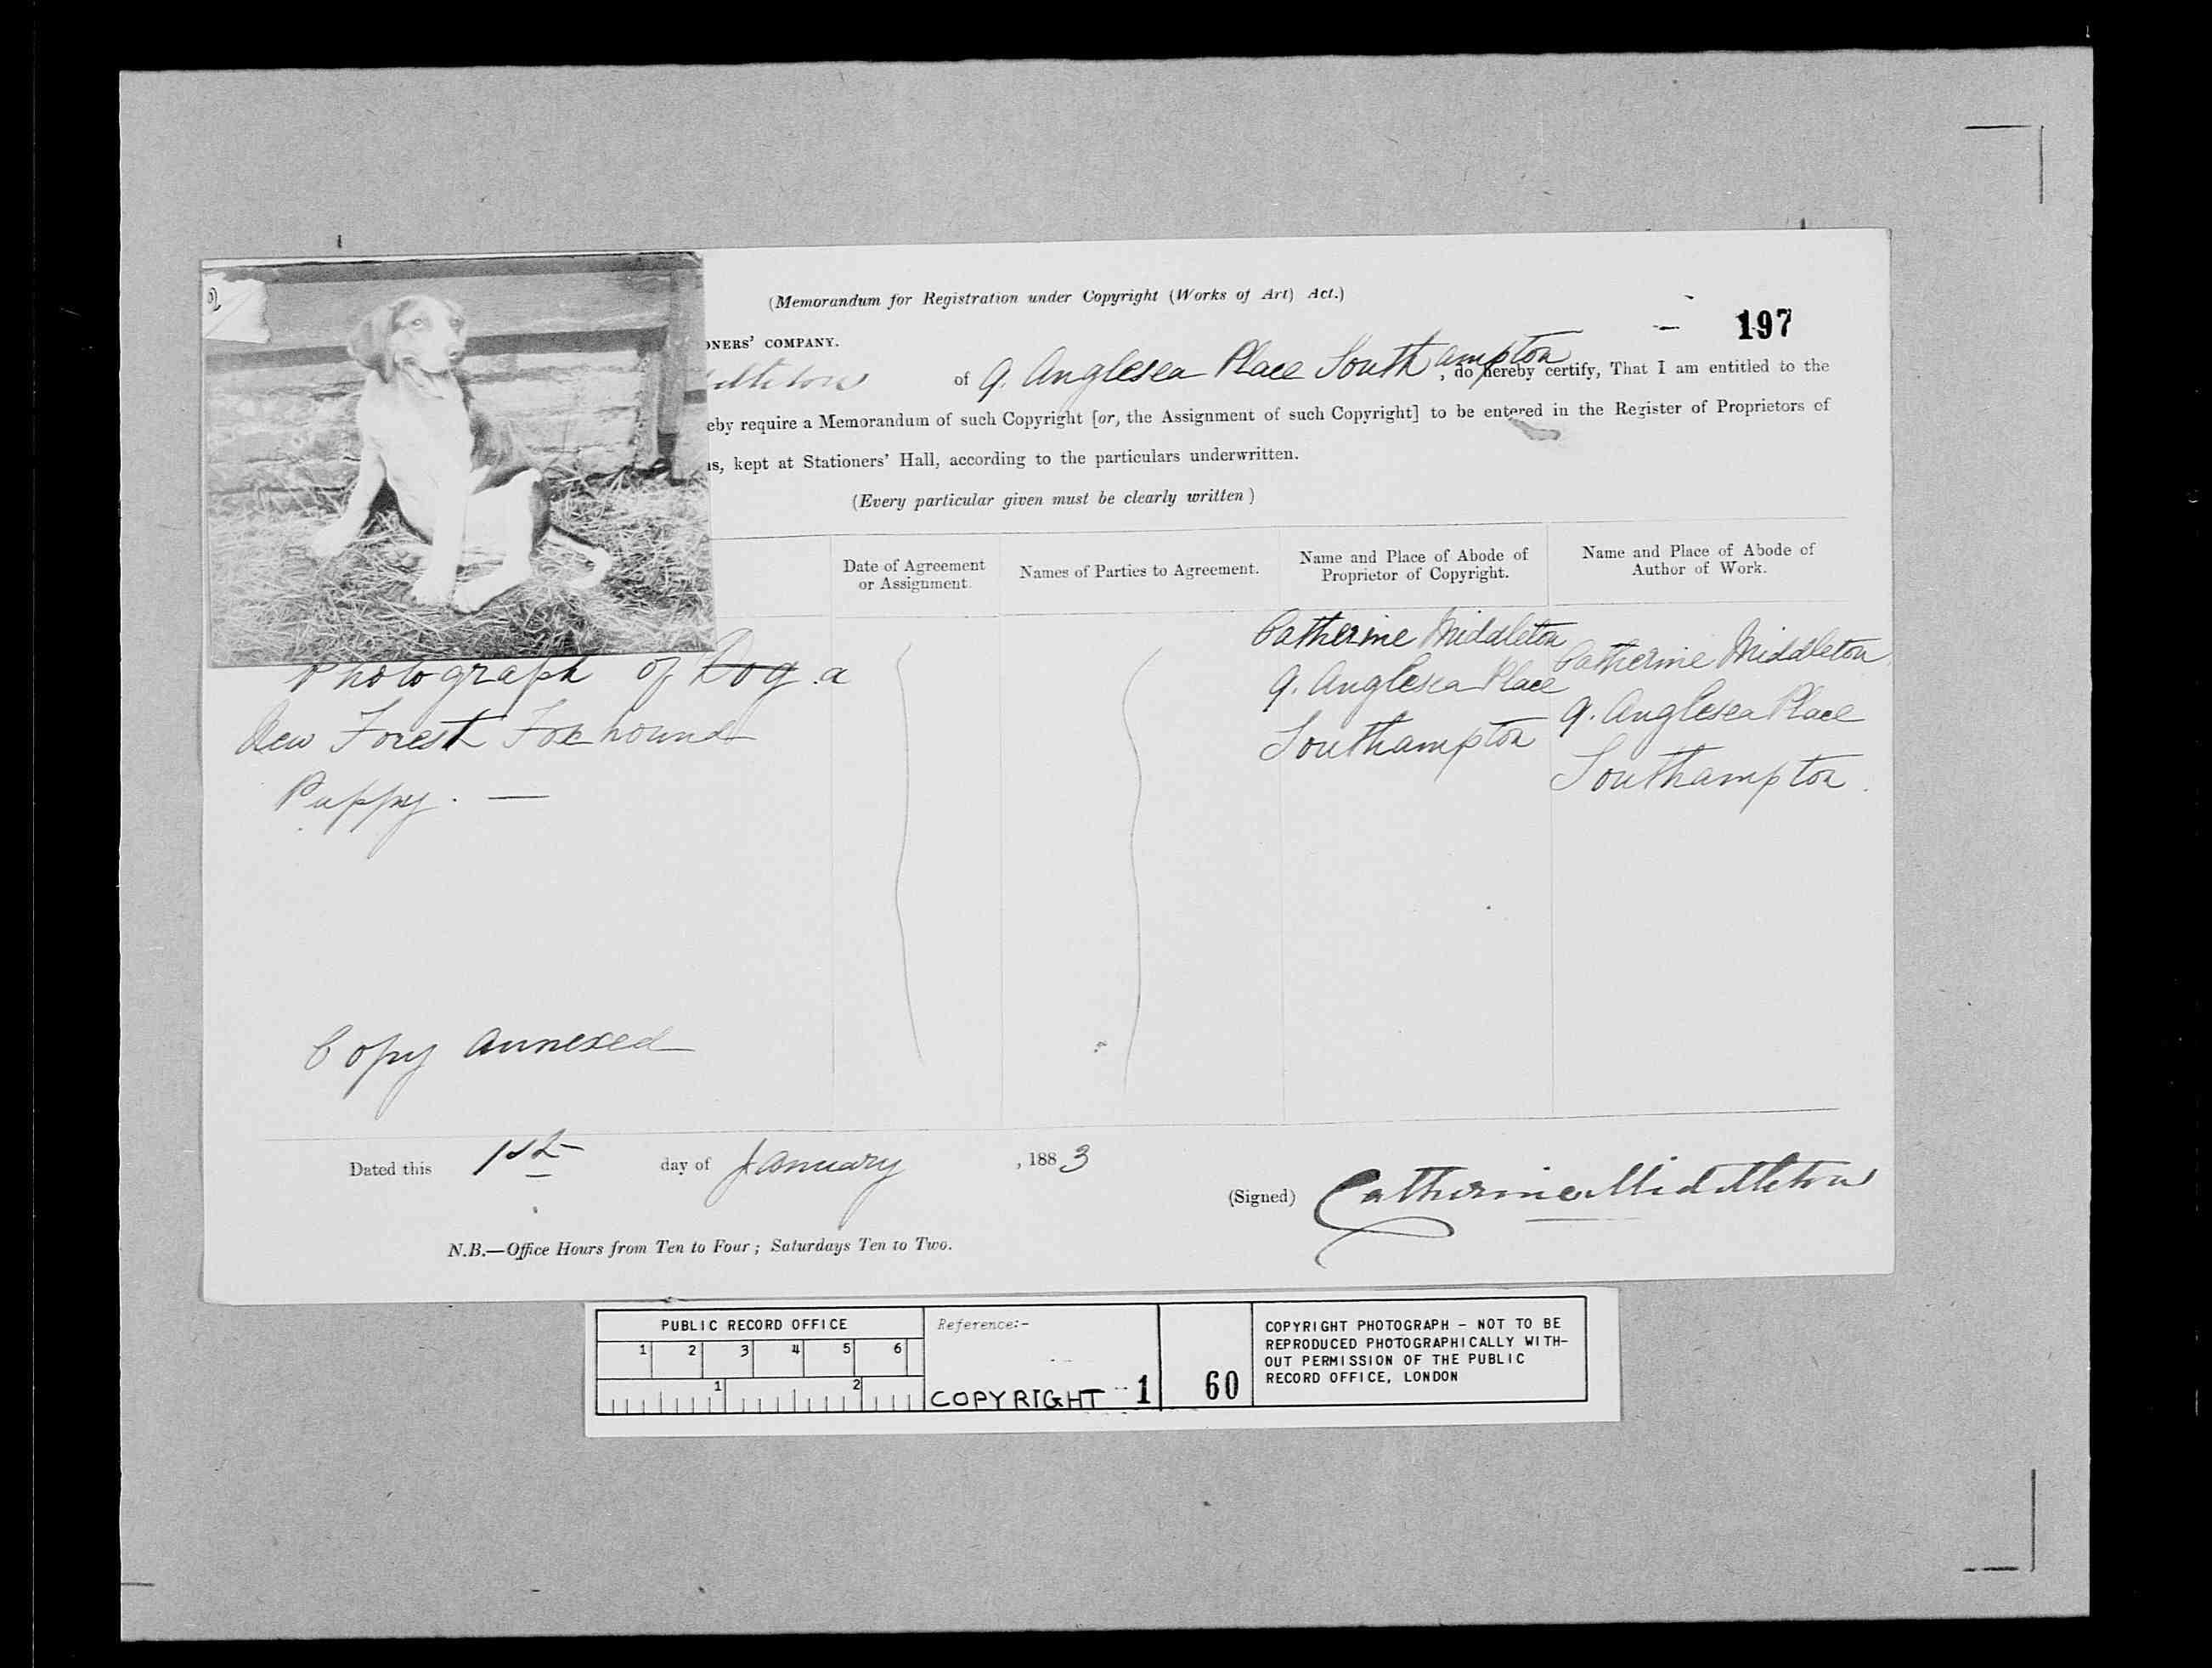 (Memorandum for Registration under Copyright (Works of Art) Act.)
197
ONERS' COMPANY.
ddleton of 9. Anglesea Place Southampton, do hereby certify, That I am entitled to the
eby require a Memorandum of such Copyright [or, the Assignment of such Copyright] to be entered in the Register of Proprietors of
ns, kept at Stationers' Hall, according to the particulars underwritten.
(Every particular given must be clearly written)
Date of Agreement
or Assignment.
Names of Parties to Agreement.
Name and Place of Abode of
Proprietor of Copyright.
Name and Place of Abode of
Author of Work.
Photograph of Dog a
New Forest Foxhound
Puppy. —
Copy annexed
Catherine Middleton
9. Anglesea Place
Southampton
Catherine Middleton
9. Anglesea Place
Southampton.
Dated this 1st day of January, 1883
(Signed) Catherine Middleton
N.B.—Office Hours from Ten to Four; Saturdays Ten to Two.
PUBLIC RECORD OFFICE
1 2 3 4 5 6
1 2
Reference:-
COPYRIGHT 1
60
COPYRIGHT PHOTOGRAPH - NOT TO BE
REPRODUCED PHOTOGRAPHICALLY WITH-
OUT PERMISSION OF THE PUBLIC
RECORD OFFICE, LONDON